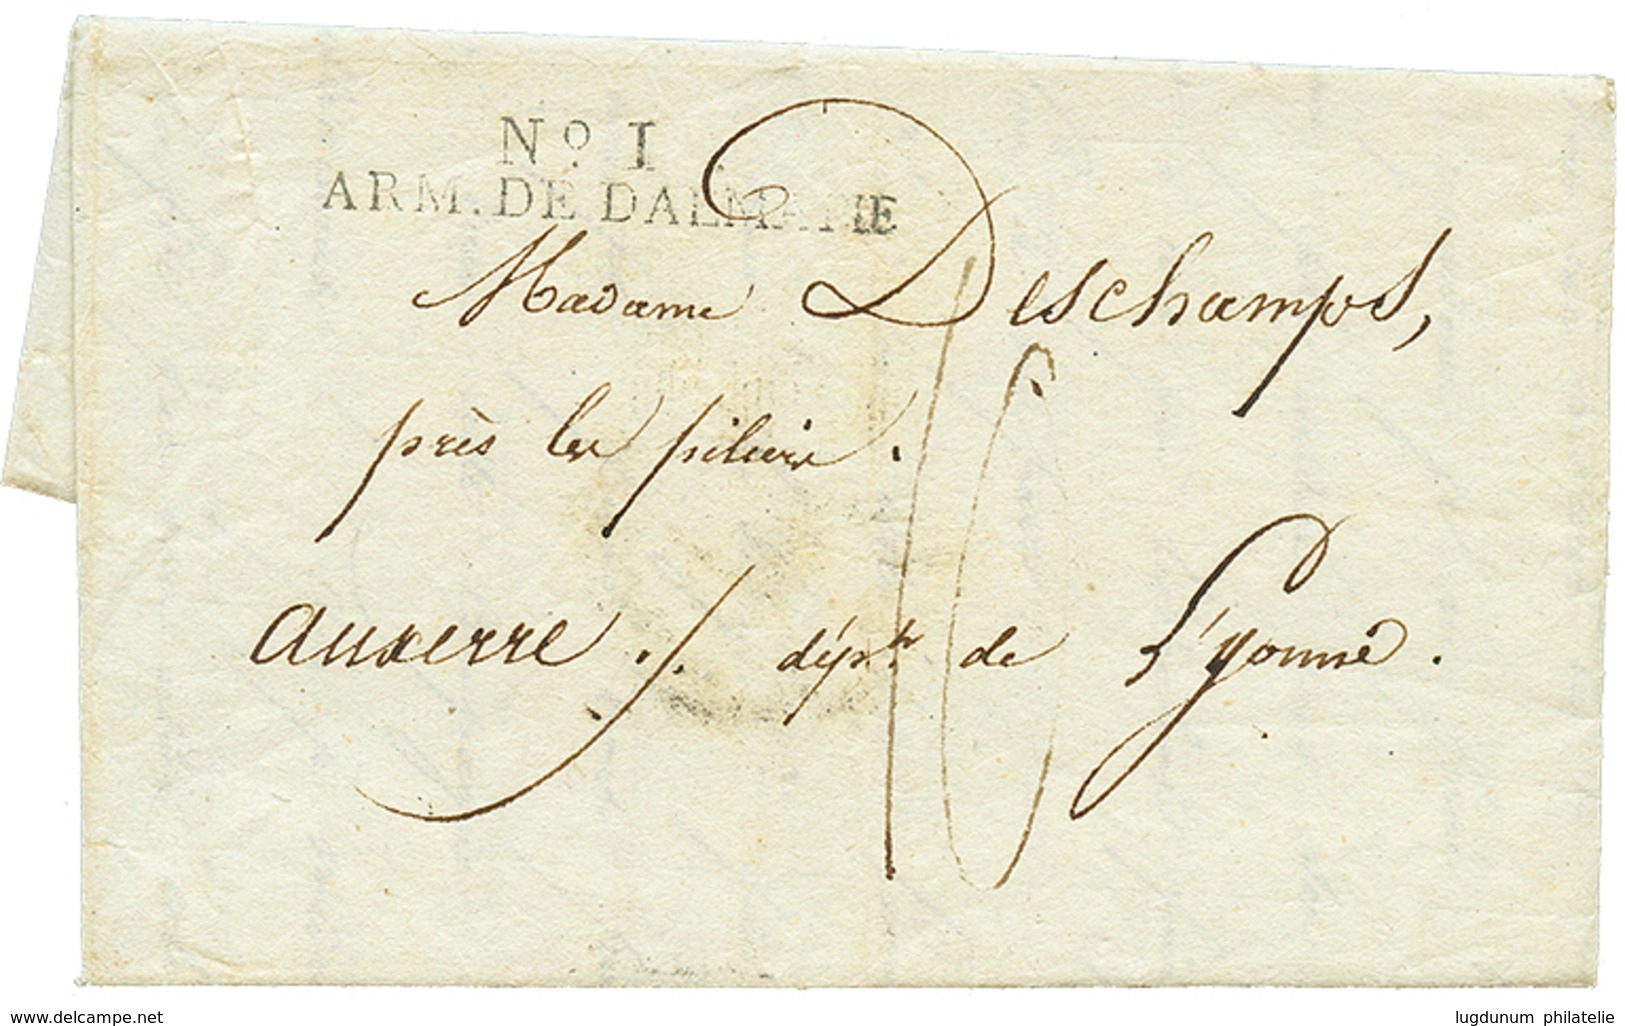 No. I
ARM. DE DALMATIE
Madame Deschamps,
près les piliers.
auxerre ./. dépt. de l'yonne.
16
www.delcampe.net
lugdunum philatelie